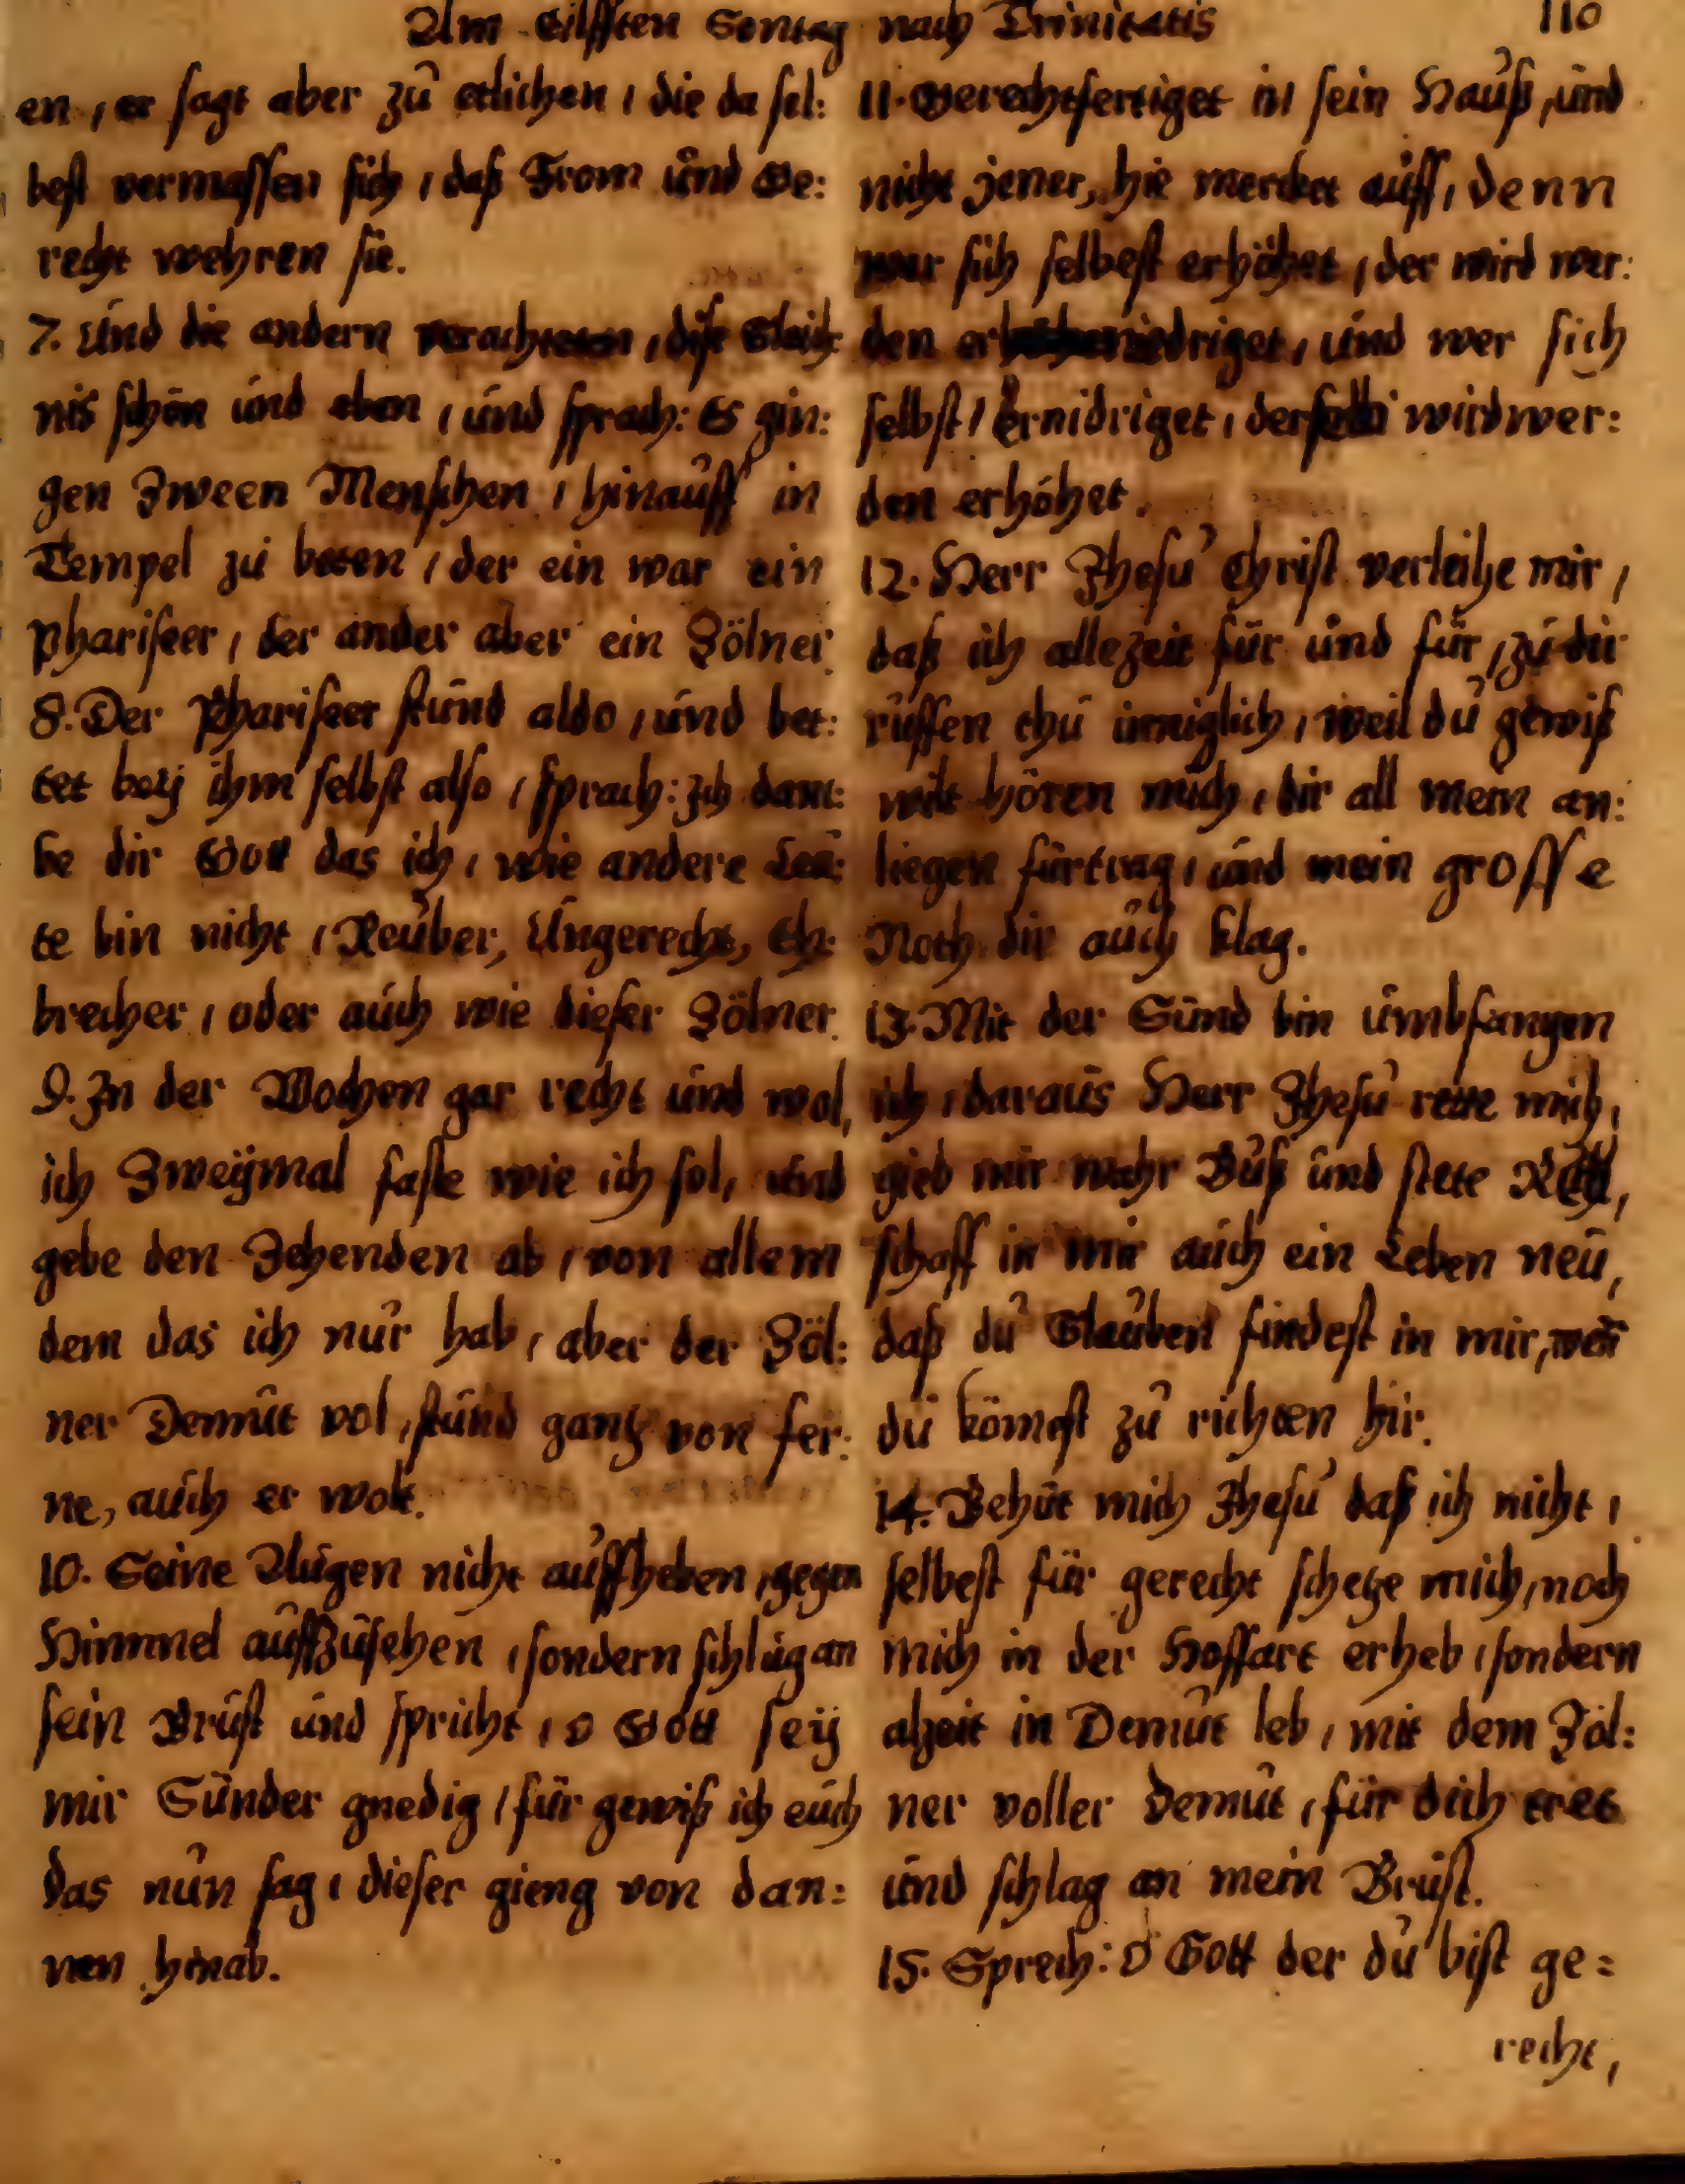 Am Eilfften Sontag nach Trinitatis 110
en, er sagt aber zu etlichen, die da sel:
best vermassen sich, daß From und Ge:
recht wehren sie.
7. Und die andern verachteten, dise Gleich:
nis schön und eben, und sprach: Es gin:
gen Zween Menschen, hinauff in
Tempel zu beten, der ein war ein
Phariseer, der ander aber ein Zölner.
8. Der Phariseer stund aldo, und bet:
tet beÿ ihm selbst also, sprach: Ich danc:
ke dir Gott das ich, wie andere Leu:
te bin nicht, Reuber, Ungerecht, Eh:
brecher, oder auch wie dieser Zölner.
9. In der Wochen gar recht und wol,
ich Zweÿmal faste wie ich sol, und
gebe den Zehenden ab, von allem
dem das ich nur hab, aber der Zöl:
ner Demut vol, stund gantz von fer:
ne, auch er wolt.
10. Seine Augen nicht auffheben, gegen
Himmel auffzusehen, sondern schlug an
sein Brust und spricht, o Gott seÿ
mir Sünder gnedig, für gewiß ich euch
das nun sag, dieser gieng von dan:
nen hinab.
11. Gerechtfertiget in sein Hauß, und
nicht jener, hie mercket auff, denn
wer sich selbest erhöhet, der wird wer:
den erniedriget, und wer sich
selbst, ernidriget, der wird wer:
den erhöhet.
12. Herr Jhesu Christ verleihe mir,
daß ich allezeit für und für, zu dir
ruffen thu inniglich, weil du gewiß
wilt hören mich, dir all mein an:
liegen fürtrag, und mein grosse
Noth dir auch klag.
13. Mit der Sünd bin umbfangen
ich, daraus Herr Jhesu rette mich,
gieb mir wahr Buß und stete
schaff in mir auch ein Leben neu,
daß du Glauben findest in mir, wen̄
du kömest zu richten hir.
14. Behüt mich Jhesu daß ich nicht,
selbest für gerecht schetze mich, noch
mich in der Hoffart erheb, sondern
alzeit in Demut leb, mit dem Zöl:
ner voller Demut, für dich tret
und schlag an mein Brust.
15. Sprech: O Gott der du bist ge=
recht,